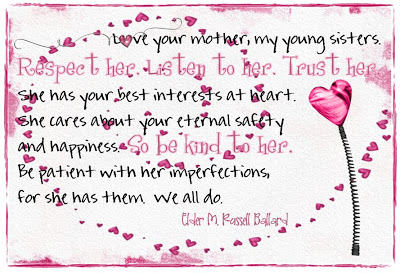 Love your mother, my young sisters.
Respect her. Listen to her. Trust her.
She has your best interests at heart.
She cares about your eternal safety
and happiness. So be kind to her.
Be patient with her imperfections,
for she has them. We all do.
Elder M. Russell Ballard